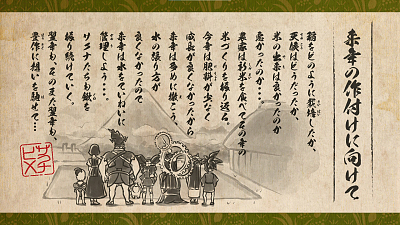 来年の作付けに向けて
稲をどのように栽培したか、
天候はどうだったか、
米の出来は良かったのか
悪かったのか・・・
農家は新米を食べてその年の
米づくりを振り返る。
今年は肥料が少なく
成長が良くなかったから
来年は多めに撒こう。
水の張り方が
良くなかったので
来年は水をていねいに
管理しよう・・・。
サクナたちも鍬を
振り続けていく。
翌年も、その また翌年も、
豊作に想いを馳せて・・・
サクナヒメ